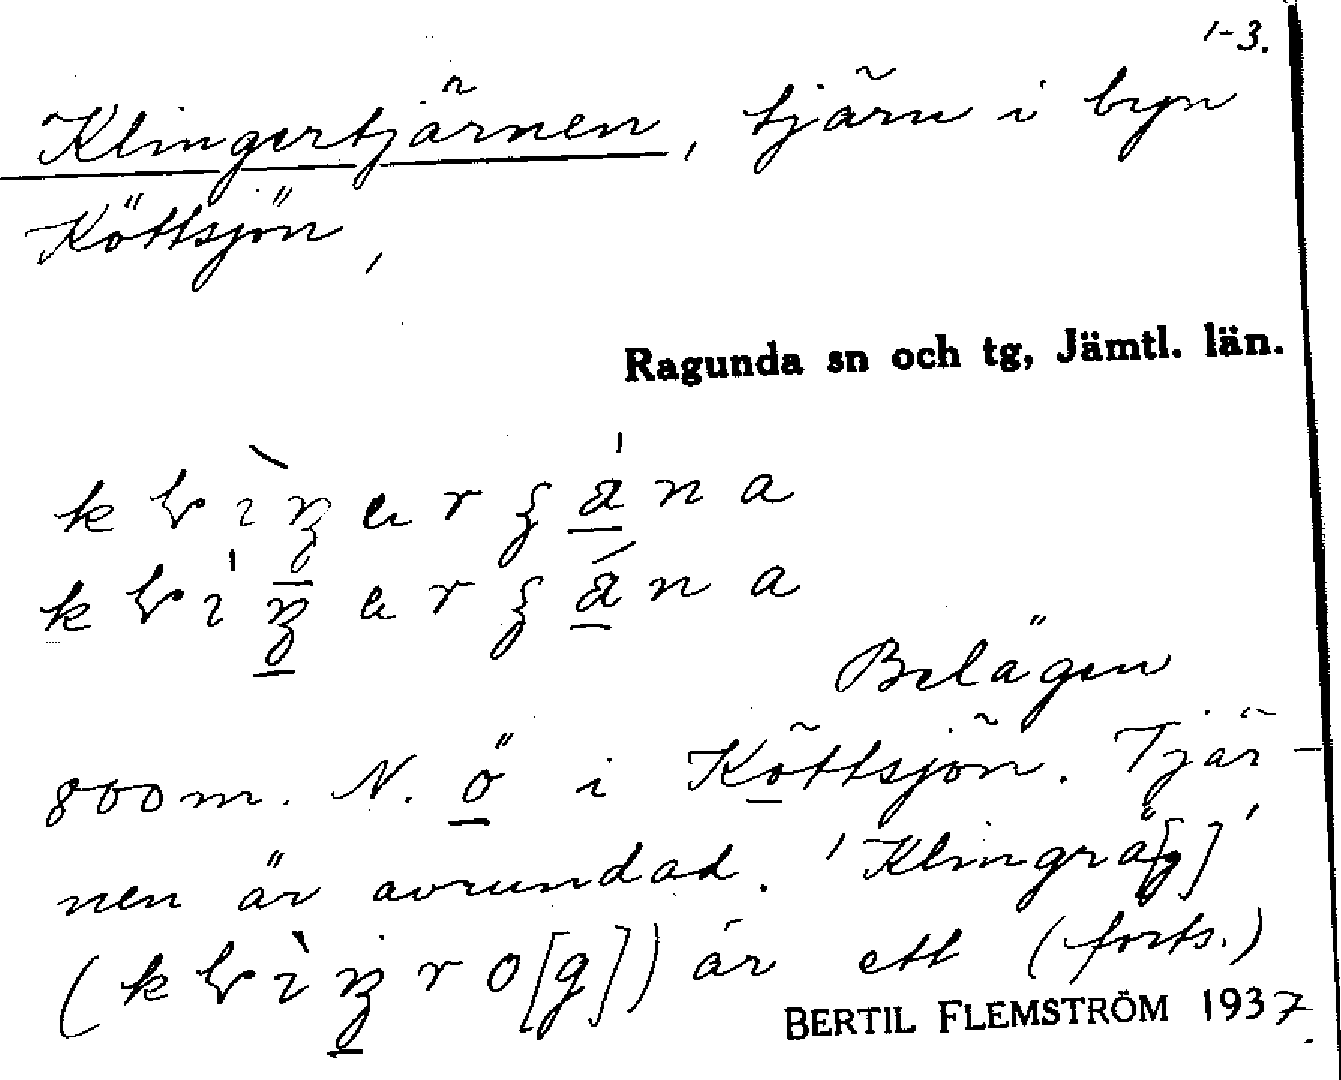 1-3.
Klingertjärnen, tjärn i byn
Köttsjön,
Ragunda sn och tg, Jämtl. län.
Belägen
800 m. N. ö i Köttsjön. Tjär-
nen är avrundad. 'Klingrå[g]'
är ett (forts.)
BERTIL FLEMSTRÖM 1937.